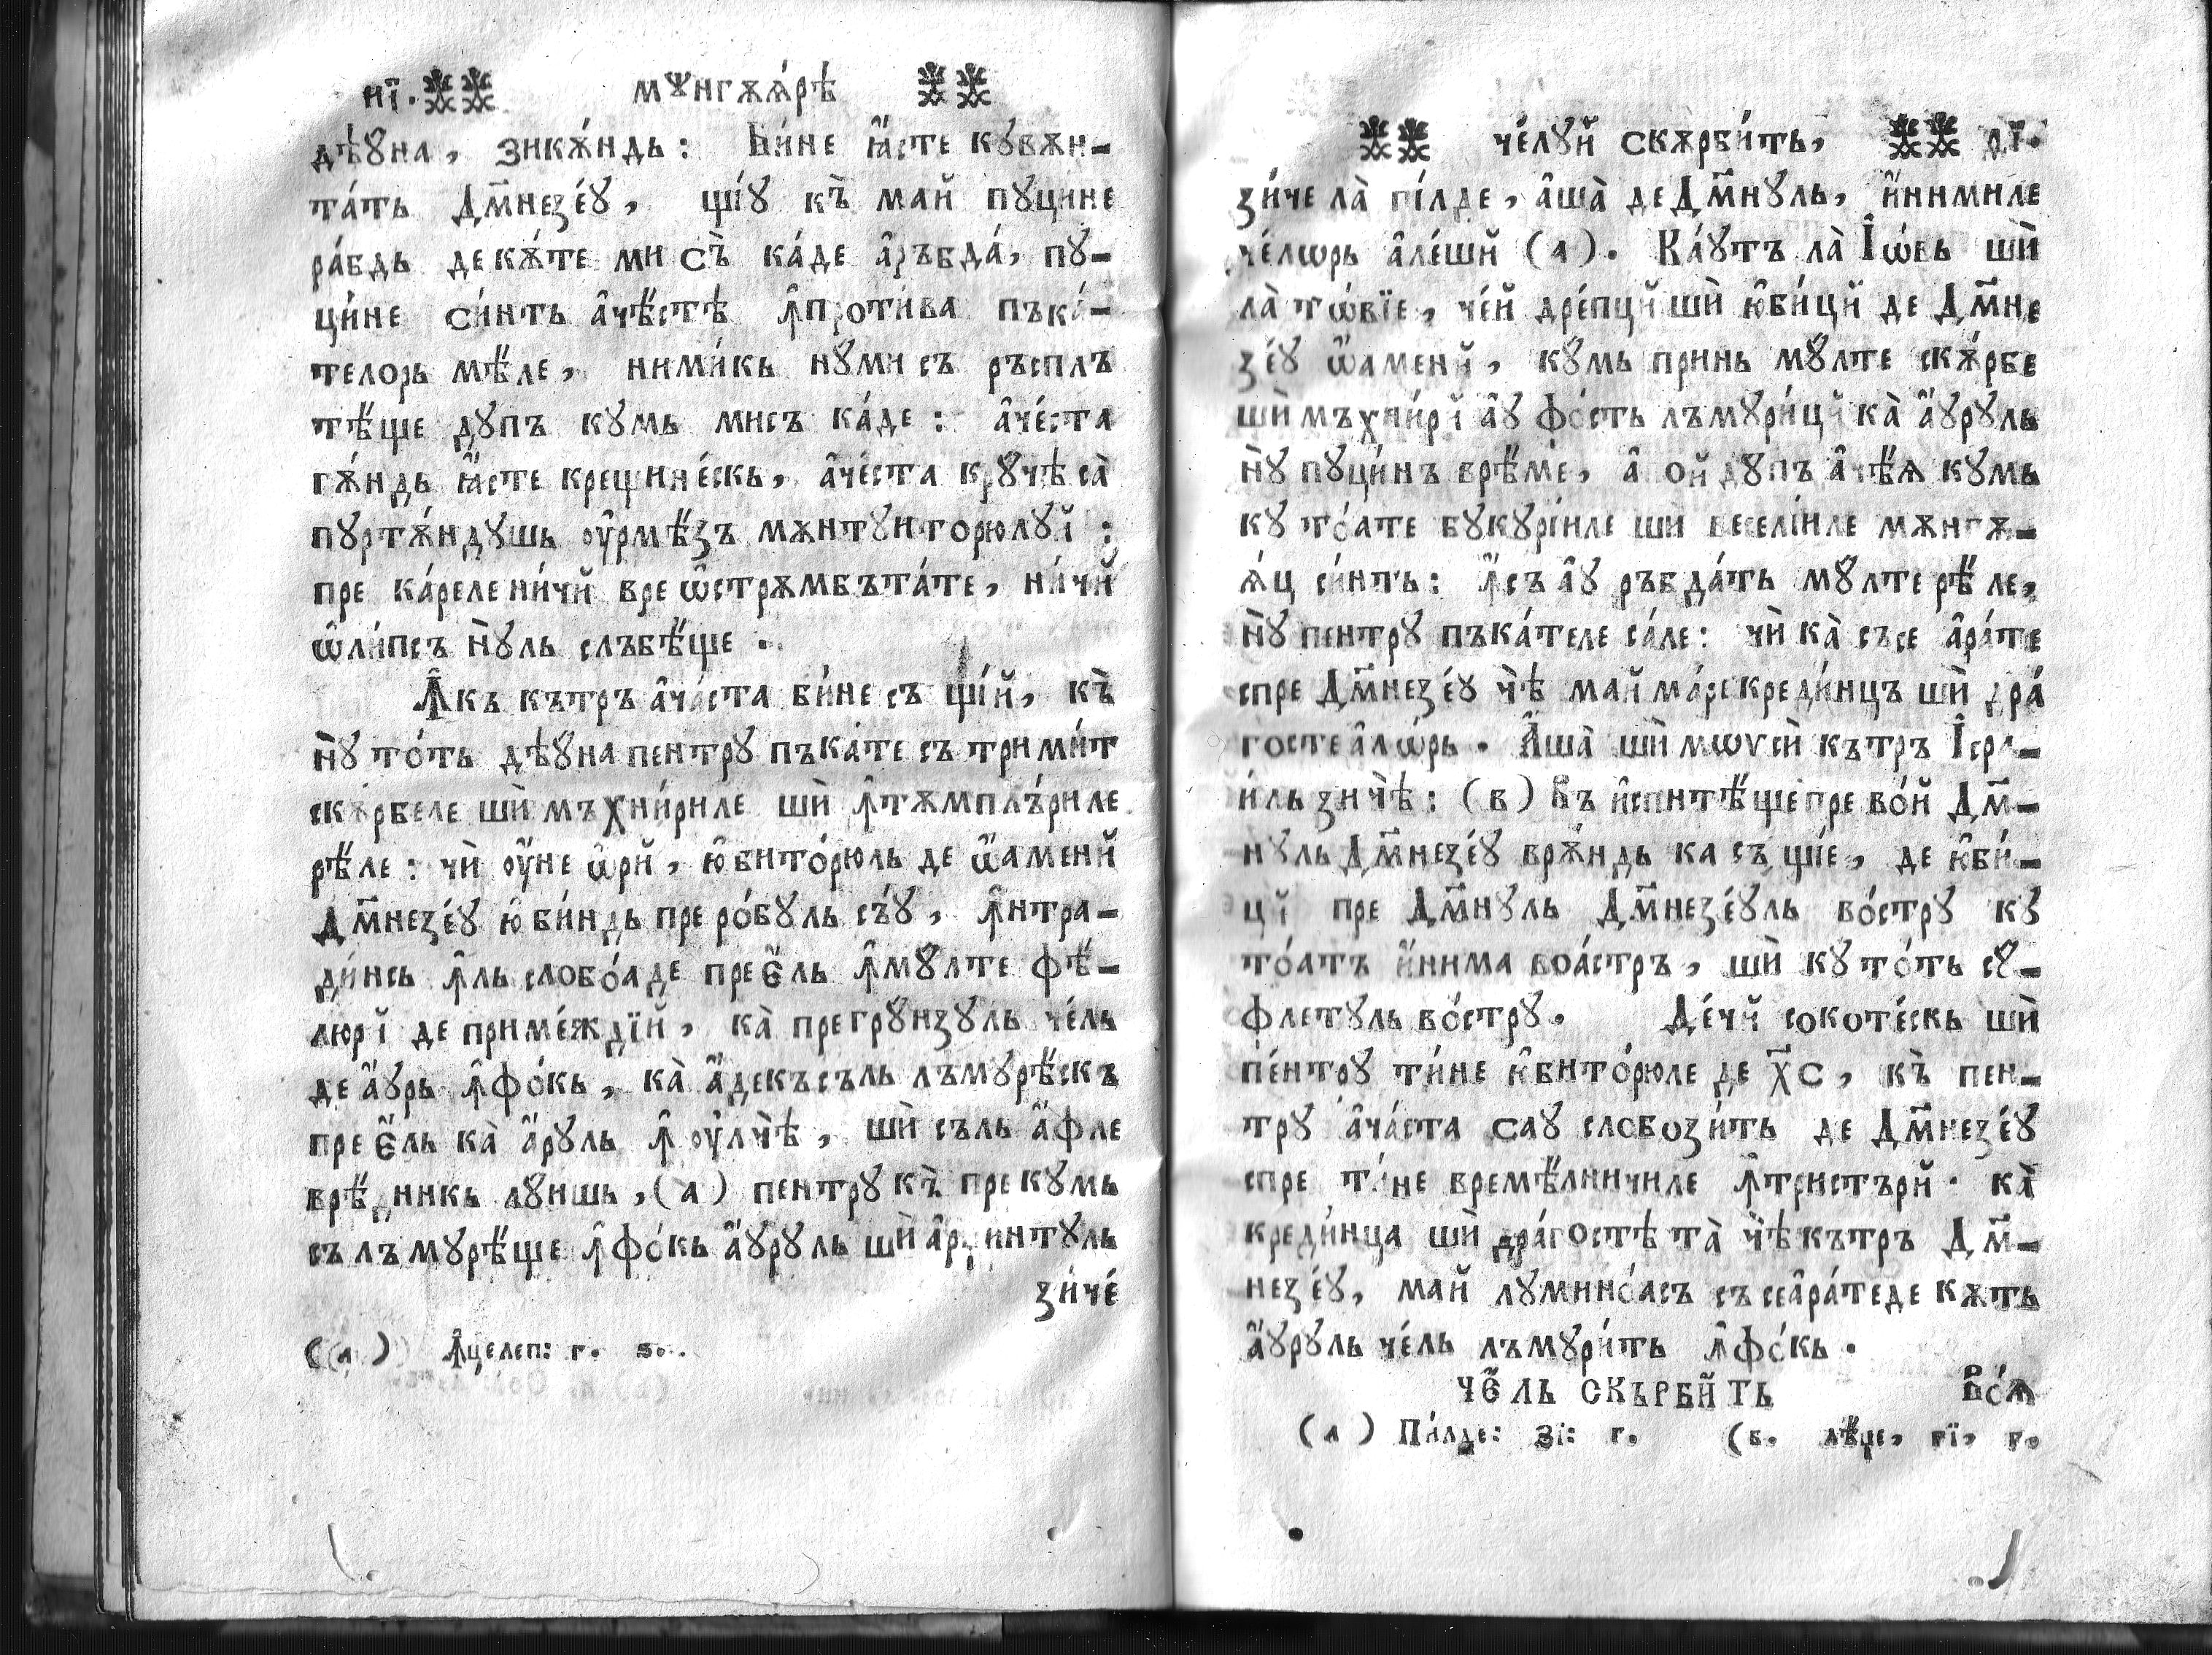 нї. мѰнгѫѧ́рѣ
дѣꙋна, зикѫ́ндь: Би́не ꙗ҆́сте кꙋвѫн-
та́ть Дм҃незе́ꙋ, щі́ꙋ къ̀ май пꙋцине
ра́бдь декѫ́те ми съ̀ ка́де а҆ръбда́, пꙋ-
ци́не си́нть а҆че́стѣ ꙟ҆проти́ва пъка́-
телорь мѣ́ле, ними́кь нꙋми съ ръспла
тѣ́ще дꙋпъ кꙋмь мисъ ка́де: а҆че́ста
гѫ́ндь ꙗ҆́сте крещине́скь, а҆че́ста крꙋ́чѣ са̀
пꙋртѫ́ндꙋшь оу҆рмѣ́зъ мѫнтꙋиторюлꙋй :
пре ка́реле ни́чй вре ѡ҆стрѫмбъта́те, ни́чй
ѡ҆ли́псъ нꙋ̀ль слъбѣ́ще .
Ꙟ҆къ кътръ а҆ча́ста би́не съ щі́й, къ̀
нꙋ̀ то́ть дѣꙋна пентрꙋ пъка́те съ трими́т
скѫрбеле шѝ мъхни́риле шѝ ꙟ҆тѫмплъ́риле
рѣ́ле: чѝ оу҆́не ѡ҆рй, ю҆бито́рюль де ѡ҆́аменй
Дм҃незе́ꙋ ю҆би́ндь пре ро́бꙋль съ́ꙋ, ꙟ҆нтра-
ди́нсь ꙟ҆ль слобо́аде пре є҆́ль ꙟ҆мꙋ́лте фѣ́-
люрй де приме́ждїй, ка̀ пре грꙋ́нзꙋль че́ль
де а҆́ꙋрь ꙟ҆фо́кь, ка̀ а҆́декъ съль лъмꙋрѣ́скъ
пре є҆́ль ка̀ а҆́рꙋль ꙟ҆ оу҆́лчѣ, шѝ съль а҆́фле
врѣ́дникь лꙋишь,(а) пентрꙋ къ̀ прекꙋмь
съ лъмꙋрѣ́ще ꙟ҆фо́кь а҆́ꙋрꙋль шѝ а҆рџинтꙋль
зи́че́
(а) Ꙟ҆целеп: г. ѕ.
че́лꙋй скѫрби́ть, ді.
зи́че ла̀ пі́лде, а҆ша̀ де Дм҃нꙋль, и҆́нимиле
че́лѡрь а҆ле́шй (а). Ка́ꙋтъ ла̀ І҆ѡ́вь шѝ
ла̀ тѡ́вїе, че́й дре́пцй шѝ ю҆би́цй де Дм҃не
зе́ꙋ ѡ҆́аменй, кꙋмь принь мꙋ́лте скѫ́рбе
шѝ мъхни́рй а҆ꙋ фо́сть лъмꙋри́цй ка̀ а҆́ꙋрꙋль
нꙋ̀ пꙋци́нъ врѣ́ме, а҆пой дꙋ́пъ а҆чѣ́ѧ кꙋмь
кꙋ то́ате бꙋкꙋрі́иле шѝ веселі́иле мѫнгѫ-
ѧ́ц си́нть: ꙟ҆́съ а҆ꙋ ръбда́ть мꙋ́лте рѣ́ле,
нꙋ̀ пентрꙋ пъка́теле са́ле: чѝ ка̀ съсе а҆ра́те
спре Дм҃незе́ꙋ чѣ̀ май ма́ре креди́нцъ шѝ дра́
госте а҆лѡ́рь . А҆ша̀ шѝ мѡѵсѝ кътръ І҆сра-
и́ль зичѣ̀: (в) Въ и҆спитѣ́ще пре во́й Дм҃-
нꙋль Дм҃незе́ꙋ врѫ́ндь ка съ щі́е, де ю҆би́-
цй пре Дм҃нꙋль Дм҃незе́ꙋль во́стрꙋ кꙋ
то́атъ и҆́нима воа́стръ, шѝ кꙋ то́ть сꙋ́-
флетꙋль во́стрꙋ. Де́чй сокоте́скь шѝ
пе́нтрꙋ ти́не ю҆бито́рюле де х҃с, къ̀ пен-
трꙋ а҆ча́ста саꙋ слобози́ть де Дм҃незе́ꙋ
спре ти́не времѣ́лничиле ꙟ҆тристърй. ка̀
креди́нца шѝ дра́гостѣ та̀ чѣ̀ кътръ Дм҃-
незе́ꙋ, май лꙋмино́асъ съсе а҆ра́те де кѫть
а҆́ꙋрꙋль че́ль лъмꙋри́ть ꙟ҆фо́кь .
чє́ль скърби́ть Во́ѧ
(а) Пи́лде: зі: г. (в. лѣ́џе, гі, г.